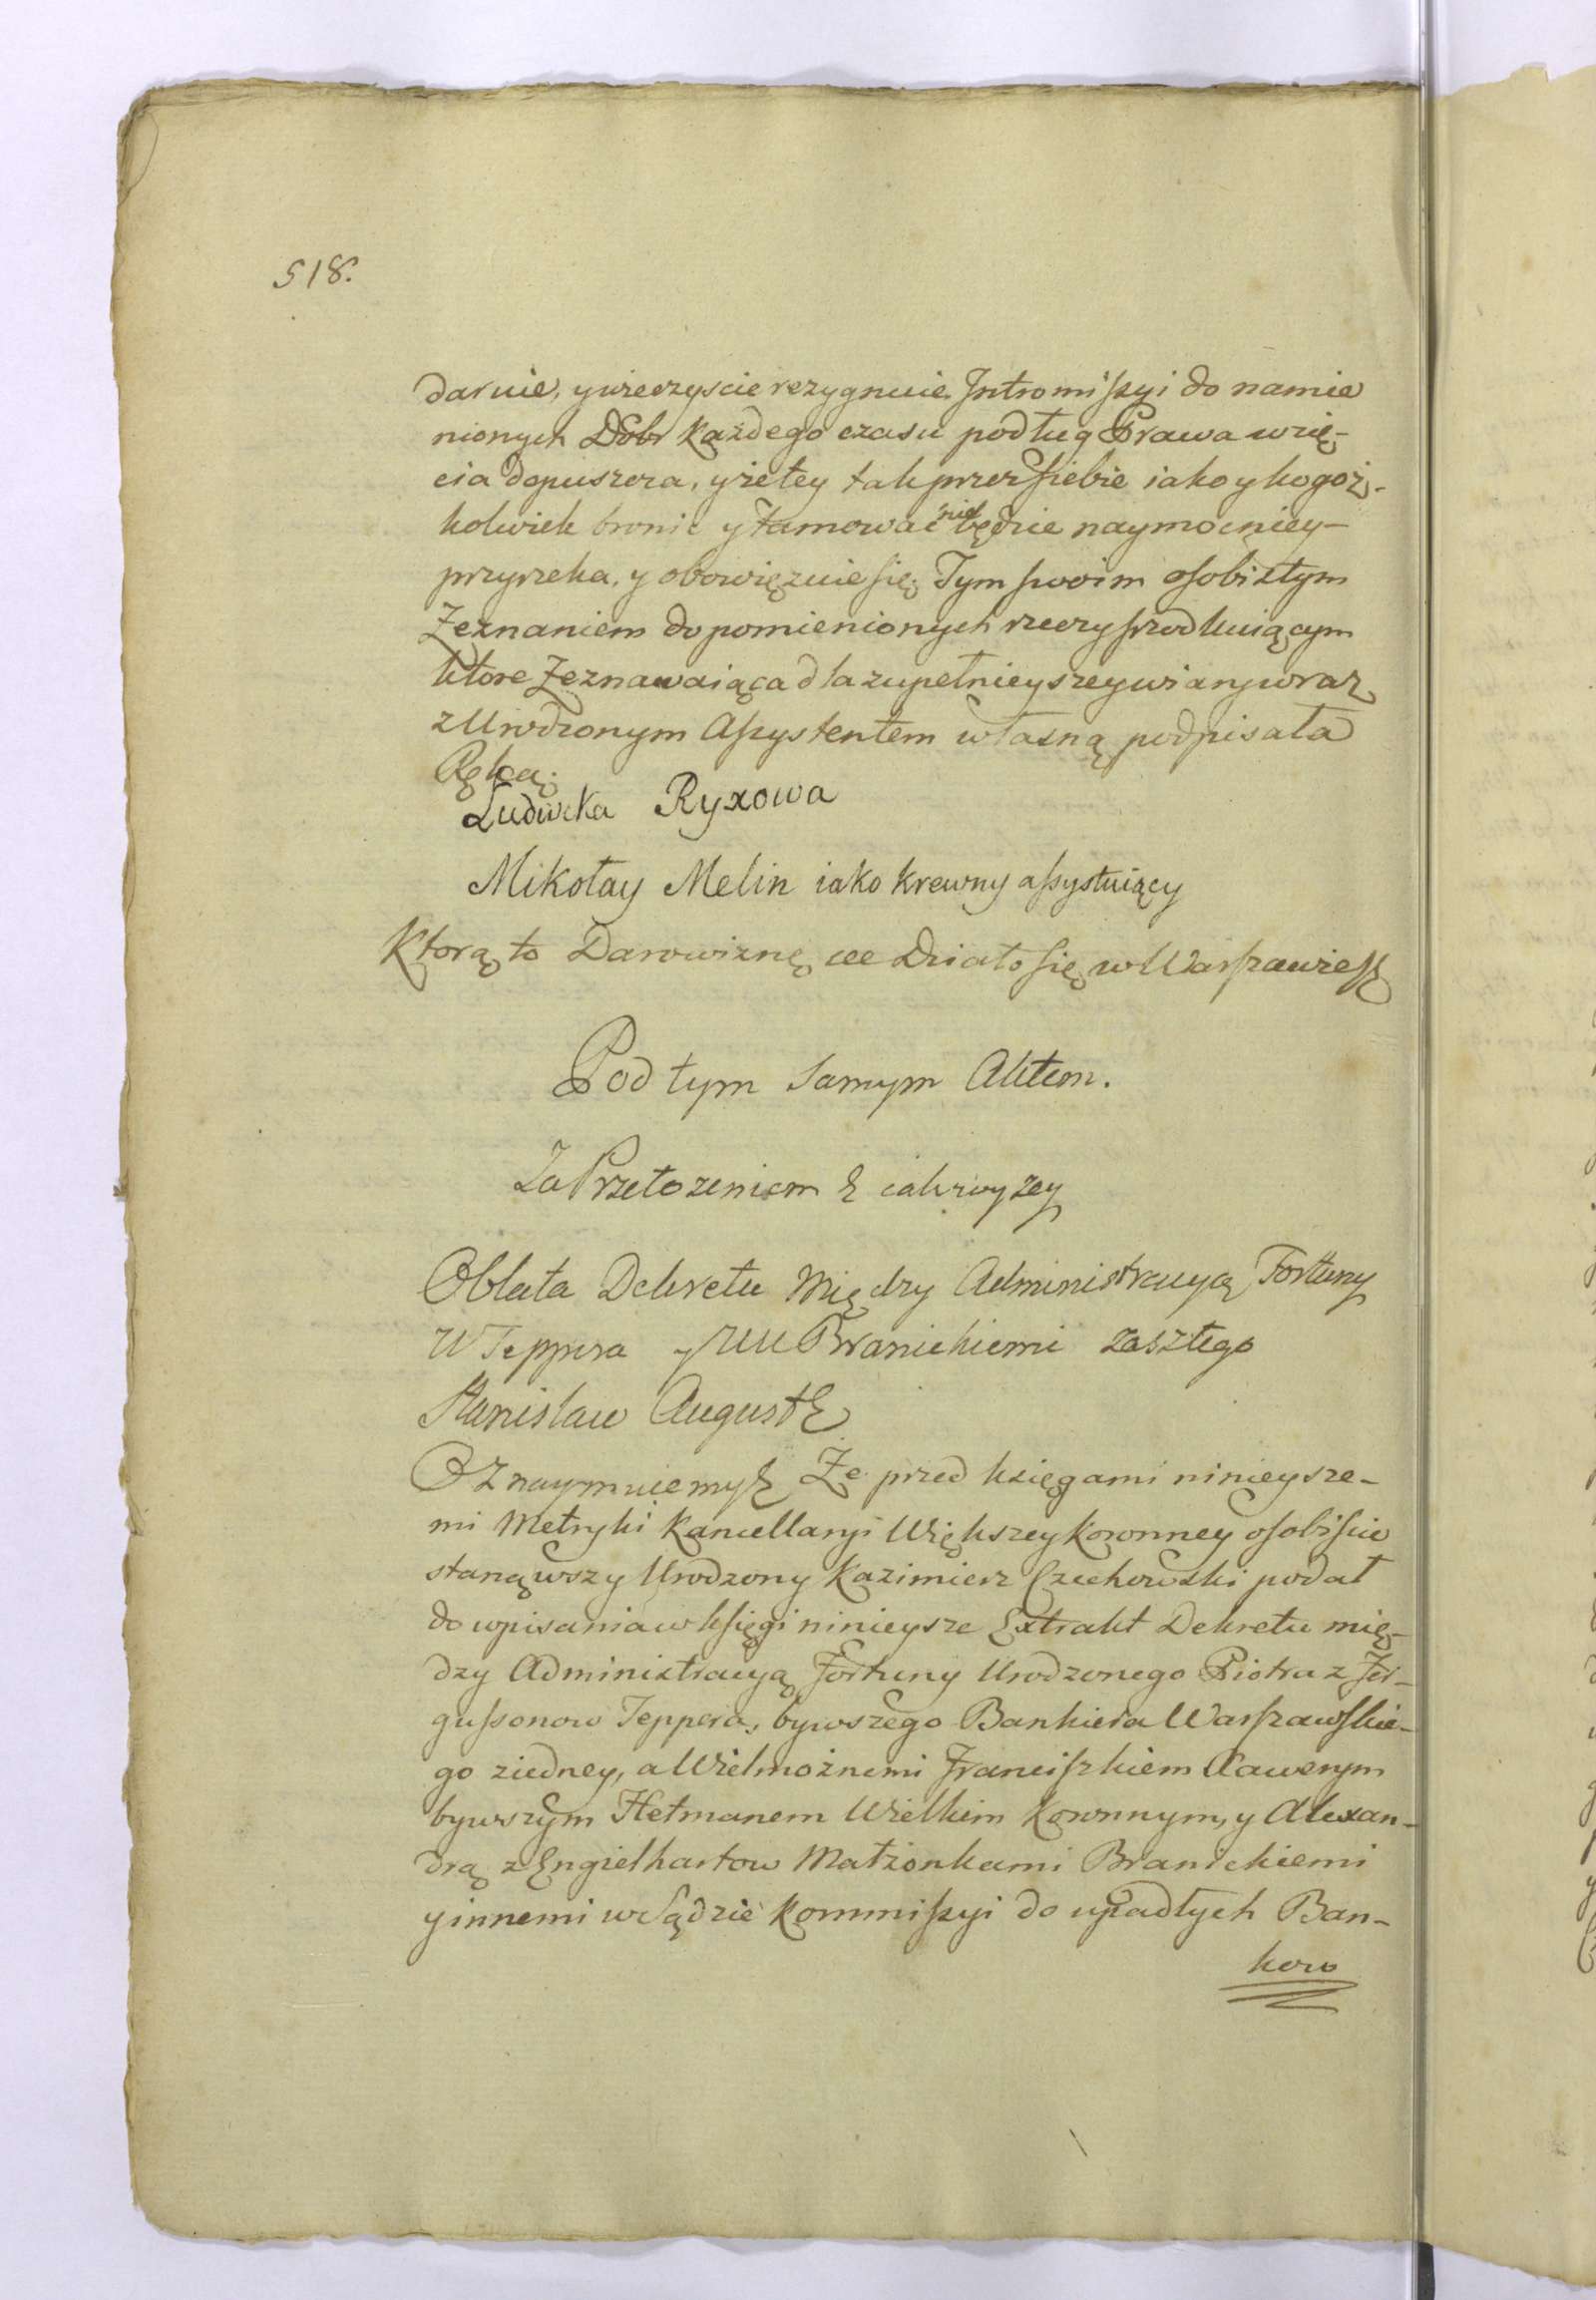 518.
daruie, y wieczyscie rezygnuie. Intromissyi do namie
nionych Dobr każdego czasu podług Prawa wzię-
cia dopuszcza, y że tey tak przez siebie iako y kogoż-
kolwiek bronić y tamować nie będzie naymocniey-
przyrzeka, y obowięzuie się; Tym swoim osobistym
Zeznaniem do pomienionych rzeczy srzodkuiącym
ktore Zeznawaiąca dla zupełnieyszey wiary wraz
z Urodzonym Assystentem własną podpisała
Ręką.
Ludwika Ryxowa
Mikołay Melin iako krewny assystuiący
Ktorą to Darowiznę etc Działo się w Warszawie
Pod tym Samym Aktem.
Za Przełożeniem & iak wyzey
Oblata Dekretu Między Administracyą Fortuny
W Teppera y WW Branickiemi zaszłego
Stanisław August &
Oznaymuiemy & Że przed księgami ninieysze-
mi Metryki Kancellaryi Większey Koronney osobiście
stanąwszy Urodzony Kazimierz Czechowski podał
do wpisania w księgi ninieysze Extrakt Dekretu mię-
dzy Administracyą Fortuny Urodzonego Piotra z Fer-
gussonow Teppera, bywszego Bankiera Warszawskie-
go z iedney, a Wielmożnemi Franciszkiem Xawerym
bywszym Hetmanem Wielkim Koronnym, y Alexan-
drą z Engielhartow Małżonkami Branickiemi
y innemi w Sądzie Kommissyi do upadłych Ban-
kow